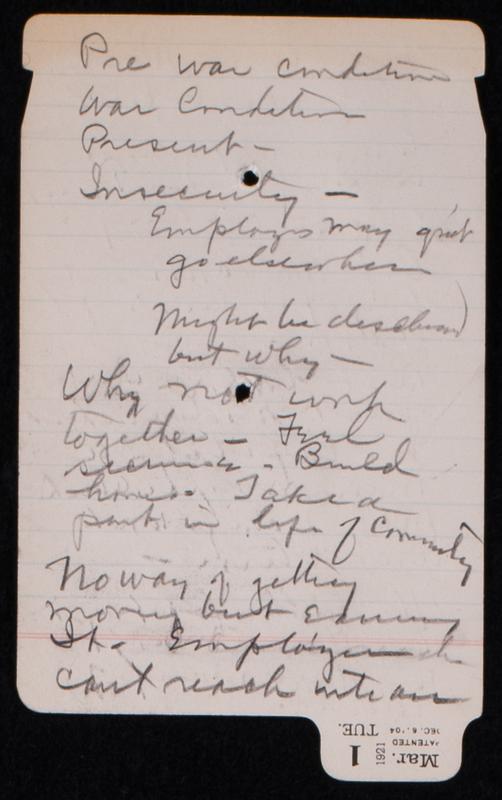 Pre war condition
War Condition
Present -
Insecurity -
Employes may quit
go elsewhere
Might be
but why -
Why not work
together - Feel
secure - Build
homes. Take a
part in life of Community
No way of getting
money but earning
It. Employer
cant reach into air
Mar. 1 1921 TUE.
PATENTED DEC. 6, '04